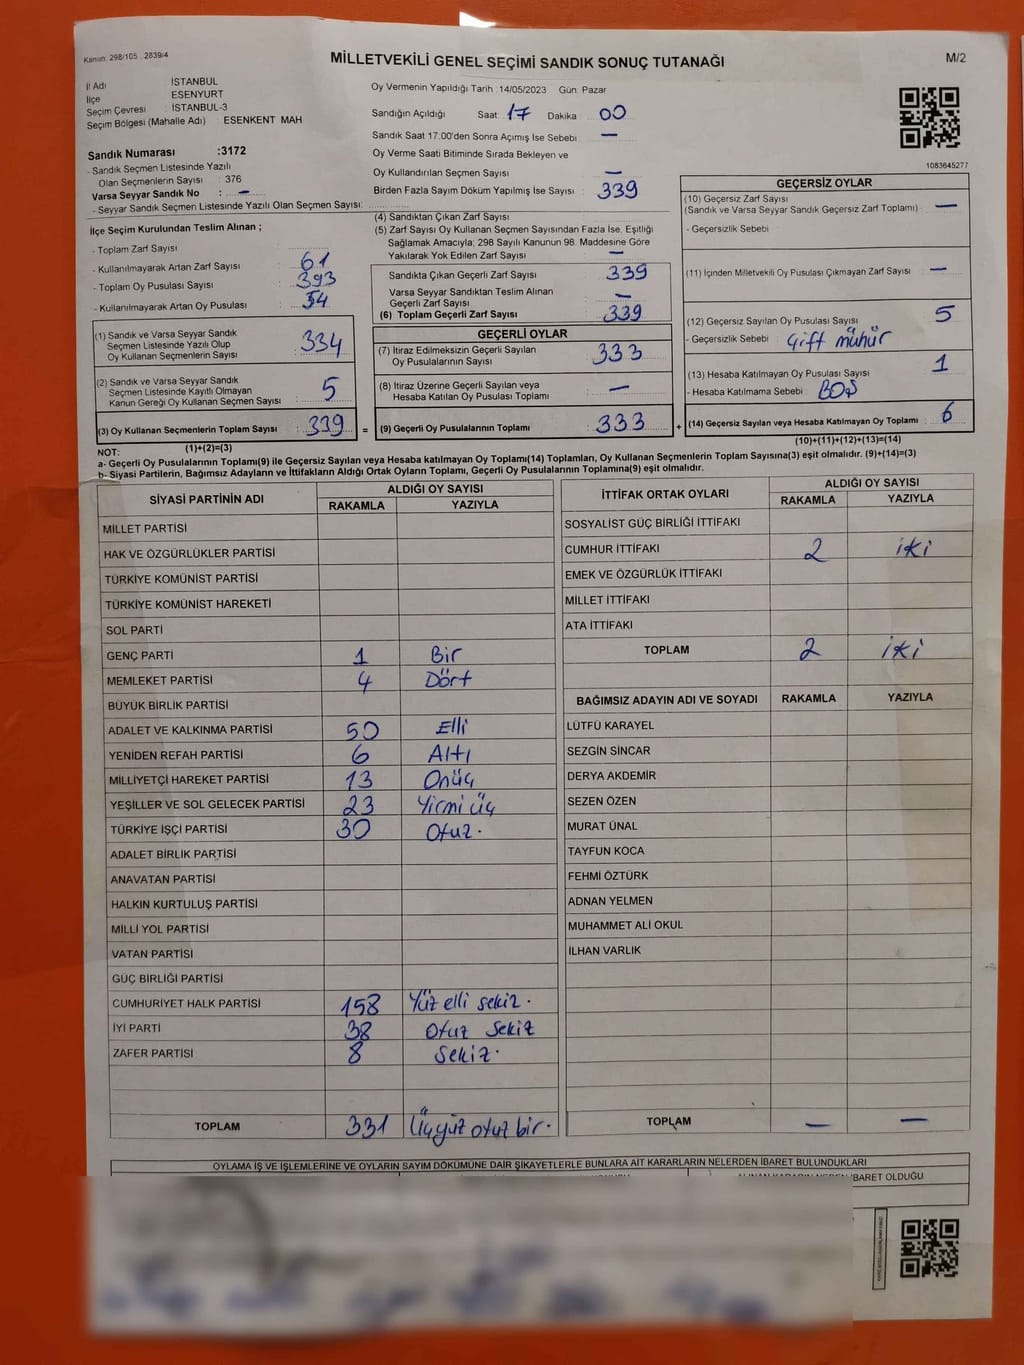 Kanun: 298/105 2839/4
MİLLETVEKİLİ GENEL SEÇİMİ SANDIK SONUÇ TUTANAĞI
M/2
İl Adı İSTANBUL
İlçe ESENYURT
Seçim Çevresi : İSTANBUL-3
Seçim Bölgesi (Mahalle Adı) : ESENKENT MAH
Sandık Numarası :3172
- Sandık Seçmen Listesinde Yazılı
Olan Seçmenlerin Sayısı : 376
Varsa Seyyar Sandık No : -
- Seyyar Sandık Seçmen Listesinde Yazılı Olan Seçmen Sayısı:
Oy Vermenin Yapıldığı Tarih : 14/05/2023 Gün: Pazar
Sandığın Açıldığı Saat: 17 Dakika 00
Sandık Saat 17.00'den Sonra Açımış İse Sebebi : -
Oy Verme Saati Bitiminde Sırada Bekleyen ve
Oy Kullandırılan Seçmen Sayısı : -
Birden Fazla Sayım Döküm Yapılmış İse Sayısı : 339
1083645277
İlçe Seçim Kurulundan Teslim Alınan ;
- Toplam Zarf Sayısı
- Kullanılmayarak Artan Zarf Sayısı : 61
- Toplam Oy Pusulası Sayısı : 393
- Kullanılmayarak Artan Oy Pusulası : 54
(1) Sandık ve Varsa Seyyar Sandık
Seçmen Listesinde Yazılı Olup
Oy Kullanan Seçmenlerin Sayısı : 334
(2) Sandık ve Varsa Seyyar Sandık
Seçmen Listesinde Kayıtlı Olmayan
Kanun Gereği Oy Kullanan Seçmen Sayısı : 5
(3) Oy Kullanan Seçmenlerin Toplam Sayısı : 339 =
(1)+(2)=(3)
(4) Sandıktan Çıkan Zarf Sayısı
(5) Zarf Sayısı Oy Kullanan Seçmen Sayısından Fazla İse, Eşitliği
Sağlamak Amacıyla; 298 Sayılı Kanunun 98. Maddesine Göre
Yakılarak Yok Edilen Zarf Sayısı : -
Sandıkta Çıkan Geçerli Zarf Sayısı : 339
Varsa Seyyar Sandıktan Teslim Alınan
Geçerli Zarf Sayısı : -
(6) Toplam Geçerli Zarf Sayısı : 339
GEÇERLİ OYLAR
(7) İtiraz Edilmeksizin Geçerli Sayılan
Oy Pusulalarının Sayısı : 333
(8) İtiraz Üzerine Geçerli Sayılan veya
Hesaba Katılan Oy Pusulası Toplamı : -
(9) Geçerli Oy Pusulalarının Toplamı : 333 +
GEÇERSİZ OYLAR
(10) Geçersiz Zarf Sayısı
(Sandık ve Varsa Seyyar Sandık Geçersiz Zarf Toplamı) : -
- Geçersizlik Sebebi
(11) İçinden Milletvekili Oy Pusulası Çıkmayan Zarf Sayısı : -
(12) Geçersiz Sayılan Oy Pusulası Sayısı : 5
- Geçersizlik Sebebi : Çift mühür
(13) Hesaba Katılmayan Oy Pusulası Sayısı : 1
- Hesaba Katılmama Sebebi : BOŞ
(14) Geçersiz Sayılan veya Hesaba Katılmayan Oy Toplamı : 6
(10)+(11)+(12)+(13)=(14)
NOT:
a- Geçerli Oy Pusulalarının Toplamı(9) ile Geçersiz Sayılan veya Hesaba katılmayan Oy Toplamı(14) Toplamları, Oy Kullanan Seçmenlerin Toplam Sayısına(3) eşit olmalıdır. (9)+(14)=(3)
b- Siyasi Partilerin, Bağımsız Adayların ve İttifakların Aldığı Ortak Oyların Toplamı, Geçerli Oy Pusulalarının Toplamına(9) eşit olmalıdır.
SİYASİ PARTİNİN ADI ALDIĞI OY SAYISI
RAKAMLA YAZIYLA
MİLLET PARTİSİ
HAK VE ÖZGÜRLÜKLER PARTİSİ
TÜRKİYE KOMÜNİST PARTİSİ
TÜRKİYE KOMÜNİST HAREKETİ
SOL PARTİ
GENÇ PARTİ 1 Bir
MEMLEKET PARTİSİ 4 Dört
BÜYÜK BİRLİK PARTİSİ
ADALET VE KALKINMA PARTİSİ 50 Elli
YENİDEN REFAH PARTİSİ 6 Altı
MİLLİYETÇİ HAREKET PARTİSİ 13 Onüç
YEŞİLLER VE SOL GELECEK PARTİSİ 23 Yirmi üç
TÜRKİYE İŞÇİ PARTİSİ 30 Otuz.
ADALET BİRLİK PARTİSİ
ANAVATAN PARTİSİ
HALKIN KURTULUŞ PARTİSİ
MİLLİ YOL PARTİSİ
VATAN PARTİSİ
GÜÇ BİRLİĞİ PARTİSİ
CUMHURİYET HALK PARTİSİ 158 Yüz elli sekiz.
İYİ PARTİ 38 Otuz sekiz
ZAFER PARTİSİ 8 Sekiz.
TOPLAM 331 Üçyüz otuz bir.
İTTİFAK ORTAK OYLARI ALDIĞI OY SAYISI
RAKAMLA YAZIYLA
SOSYALİST GÜÇ BİRLİĞİ İTTİFAKI
CUMHUR İTTİFAKI 2 iki
EMEK VE ÖZGÜRLÜK İTTİFAKI
MİLLET İTTİFAKI
ATA İTTİFAKI
TOPLAM 2 iki
BAĞIMSIZ ADAYIN ADI VE SOYADI RAKAMLA YAZIYLA
LÜTFÜ KARAYEL
SEZGİN SİNCAR
DERYA AKDEMİR
SEZEN ÖZEN
MURAT ÜNAL
TAYFUN KOCA
FEHMİ ÖZTÜRK
ADNAN YELMEN
MUHAMMET ALİ OKUL
İLHAN VARLIK
TOPLAM - -
OYLAMA İŞ VE İŞLEMLERİNE VE OYLARIN SAYIM DÖKÜMÜNE DAİR ŞİKAYETLERLE BUNLARA AİT KARARLARIN NELERDEN İBARET BULUNDUKLARI
İBARET OLDUĞU